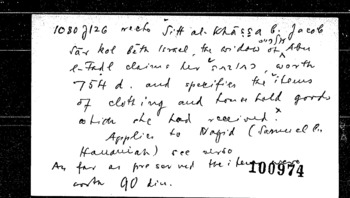 1080 J126 recto Sitt al-Khāṣṣa b. Jacob
Sār kol bēth Israel, the widow of Abu
l-Faḍl claims her worth
754 d. and specifies the items
of clothing and household goods
which she had received.
Applies to Nagid (Samuel b.
Hananiah) see verso
As far as preserved the items were
100974
worth 90 din.